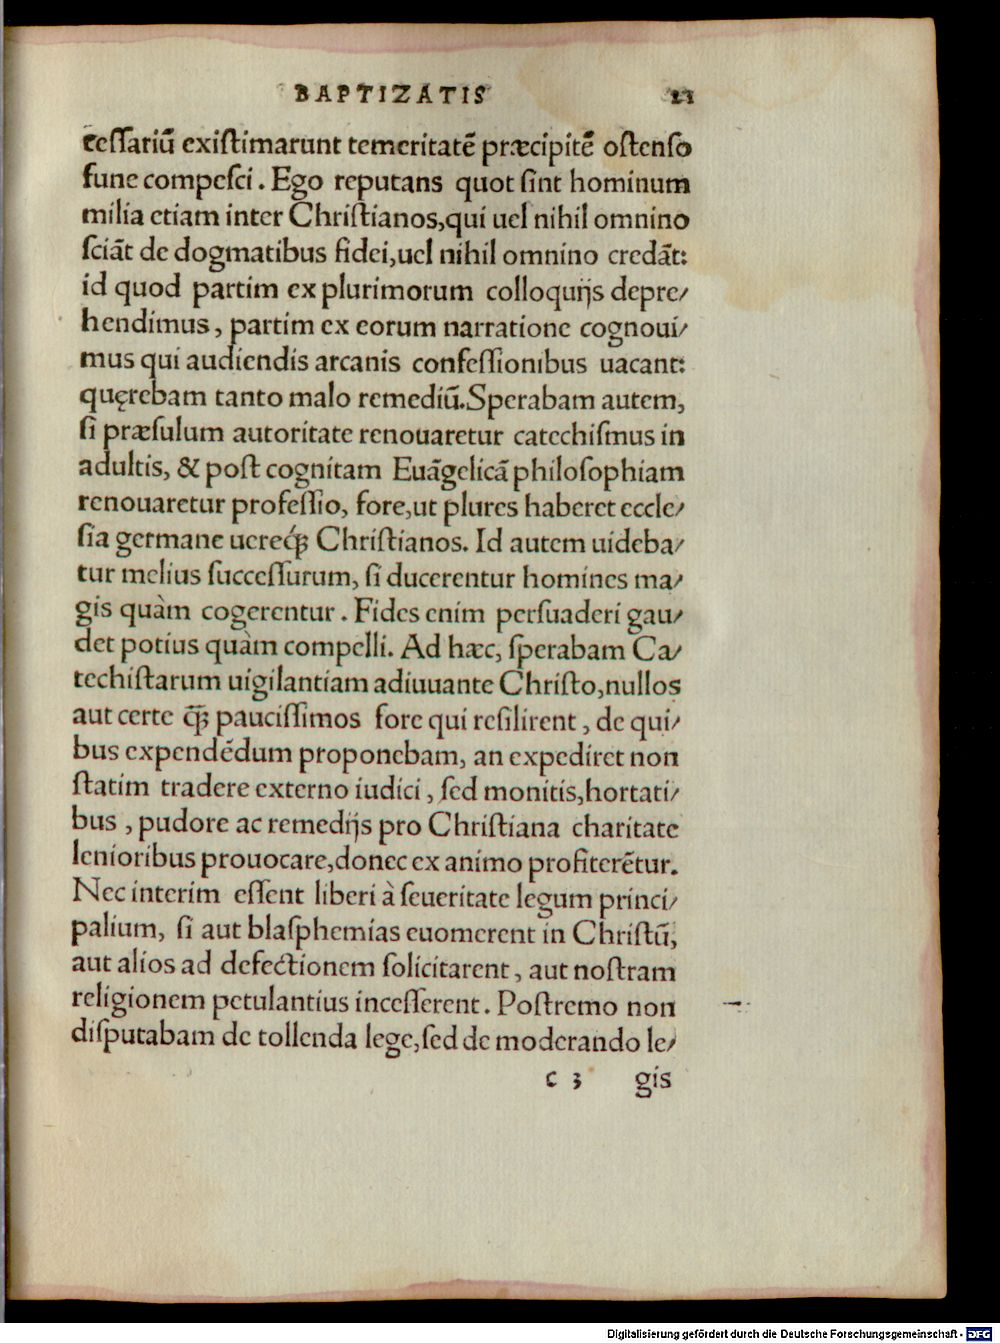 BAPTIZATIS 21
cessariũ existimarunt temeritatẽ præcipitẽ ostenso
fune compesci. Ego reputans quot sint hominum
milia etiam inter Christianos, qui uel nihil omnino
sciãt de dogmatibus fidei, uel nihil omnino credãt:
id quod partim ex plurimorum colloquijs depre/
hendimus, partim ex eorum narratione cognoui/
mus qui audiendis arcanis confessionibus uacant:
quęrebam tanto malo remediũ. Sperabam autem,
si præsulum autoritate renouaretur catechismus in
adultis, & post cognitam Euãgelicã philosophiam
renouaretur professio, fore, ut plures haberet eccle/
sia germane uereq́ꝫ Christianos. Id autem uideba/
tur melius successurum, si ducerentur homines ma/
gis quàm cogerentur. Fides enim persuaderi gau/
det potius quàm compelli. Ad hæc, sperabam Ca/
techistarum uigilantiam adiuuante Christo, nullos
aut certe q̃ꝫ paucissimos fore qui resilirent, de qui/
bus expendẽdum proponebam, an expediret non
statim tradere externo iudici, sed monitis, hortati/
bus, pudore ac remedijs pro Christiana charitate
lenioribus prouocare, donec ex animo profiterẽtur.
Nec interim essent liberi à seueritate legum princi/
palium, si aut blasphemias euomerent in Christũ,
aut alios ad defectionem solicitarent, aut nostram
religionem petulantius incesserent. Postremo non
disputabam de tollenda lege, sed de moderando le/
c 3 gis
Digitalisierung gefördert durch die Deutsche Forschungsgemeinschaft - DFG